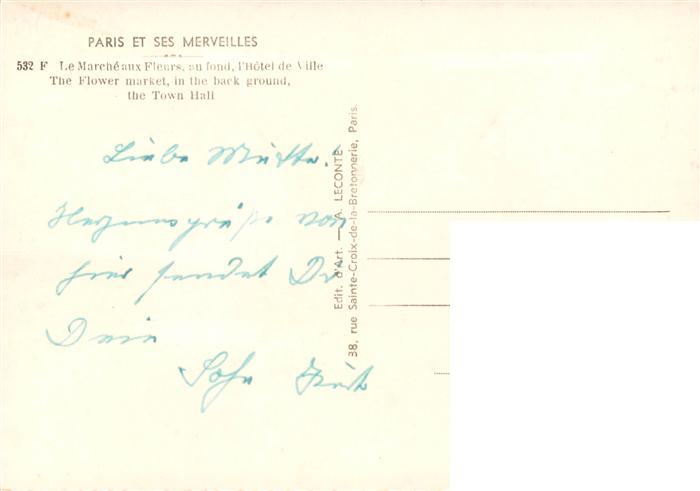 PARIS ET SES MERVEILLES
532 F Le Marché aux Fleurs, au fond, l'Hôtel de Ville
The Flower market, in the back ground,
the Town Hall
Liebe Mutter!
Herzensgrüße von
hier sendet Dir
Dein
Sohn Kurt
Edit. d'Art. — A. LECONTE
38, rue Sainte-Croix-de-la-Bretonnerie, Paris.